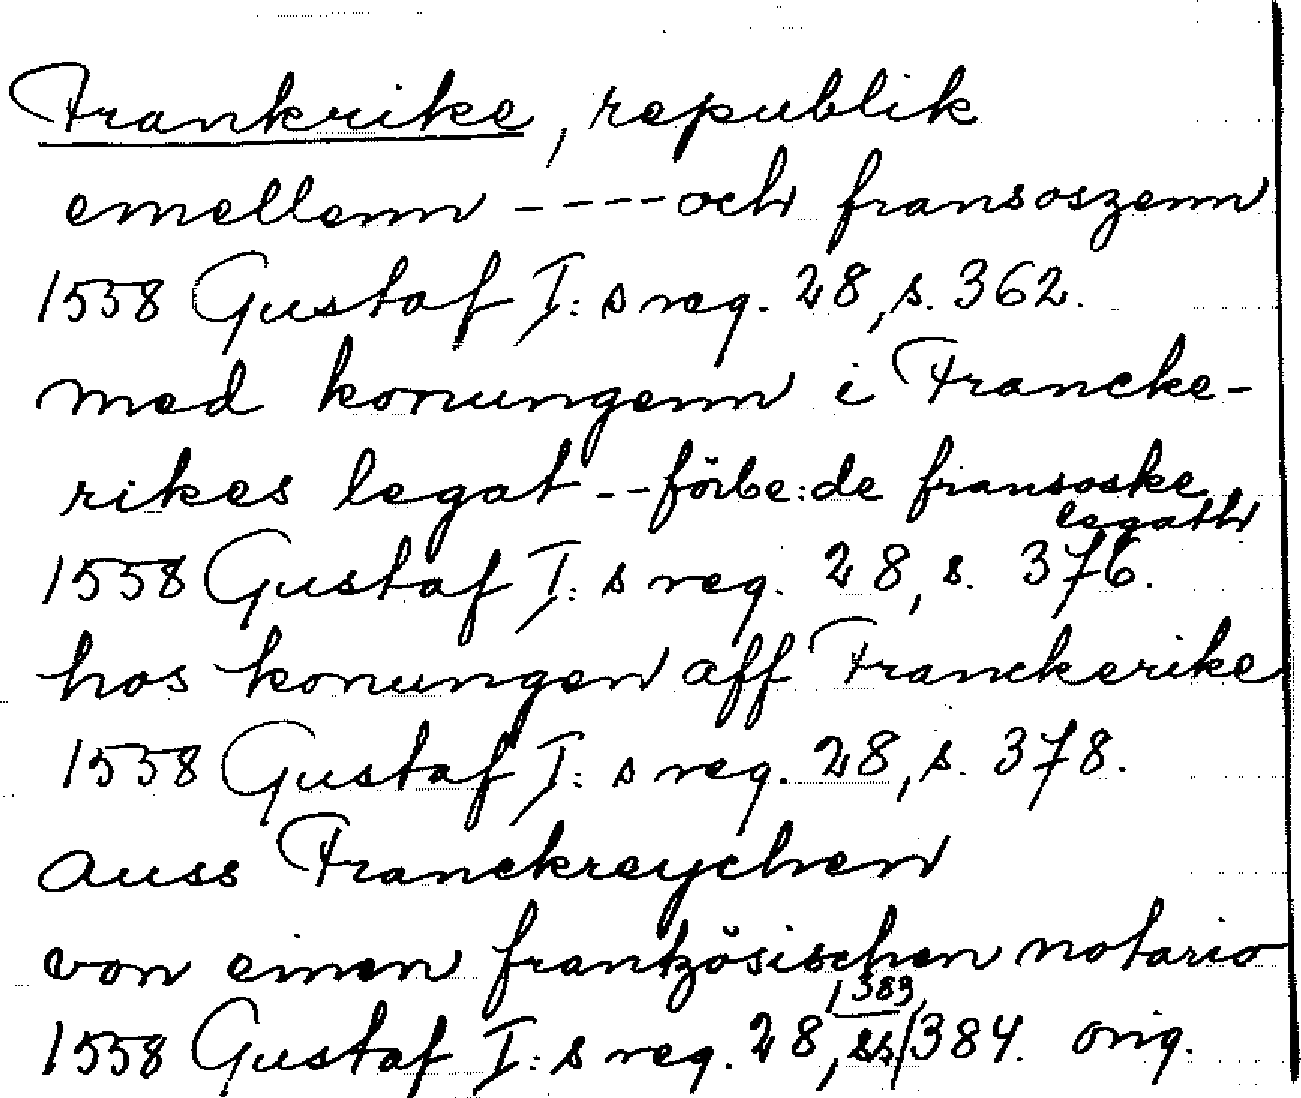 Frankrike, republik
emellenn ---- och fransoszenn
1558 Gustaf I: s reg. 28, s. 362.
med konungenn i Francke-
rikes legat -- förbe:de fransoske
legath
1558 Gustaf I: s reg. 28, s. 376.
hos konungen aff Franckerike
1558 Gustaf I: s reg. 28, s. 378.
auss Franckreychen
von einen frantzösischen notario
1558 Gustaf I: s reg. 28, ss 383, 384. orig.